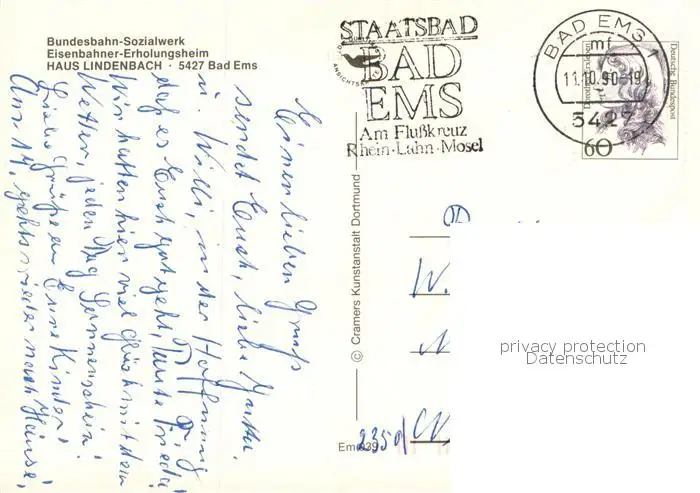 Bundesbahn-Sozialwerk
Eisenbahner-Erholungsheim
HAUS LINDENBACH · 5427 Bad Ems
STAATSBAD
BAD
EMS
Am Flußkreuz
Rhein·Lahn·Mosel
BAD EMS
mf
11.10.90-19
5427
Deutsche Bundespost
60
Einen lieben Gruß
sendet Euch, liebe Jutta
u. Willi, in der Hoffnung
daß es Euch gut geht, Tante Frieda
Wir hatten hier viel Glück mit dem
Wetter, jeden Tag Sonnenschein!
Liebe Grüße an Eure Kinder!
Am 14. geht's wieder nach Hause,
© Cramers Kunstanstalt Dortmund
W.
2350
privacy protection
Datenschutz